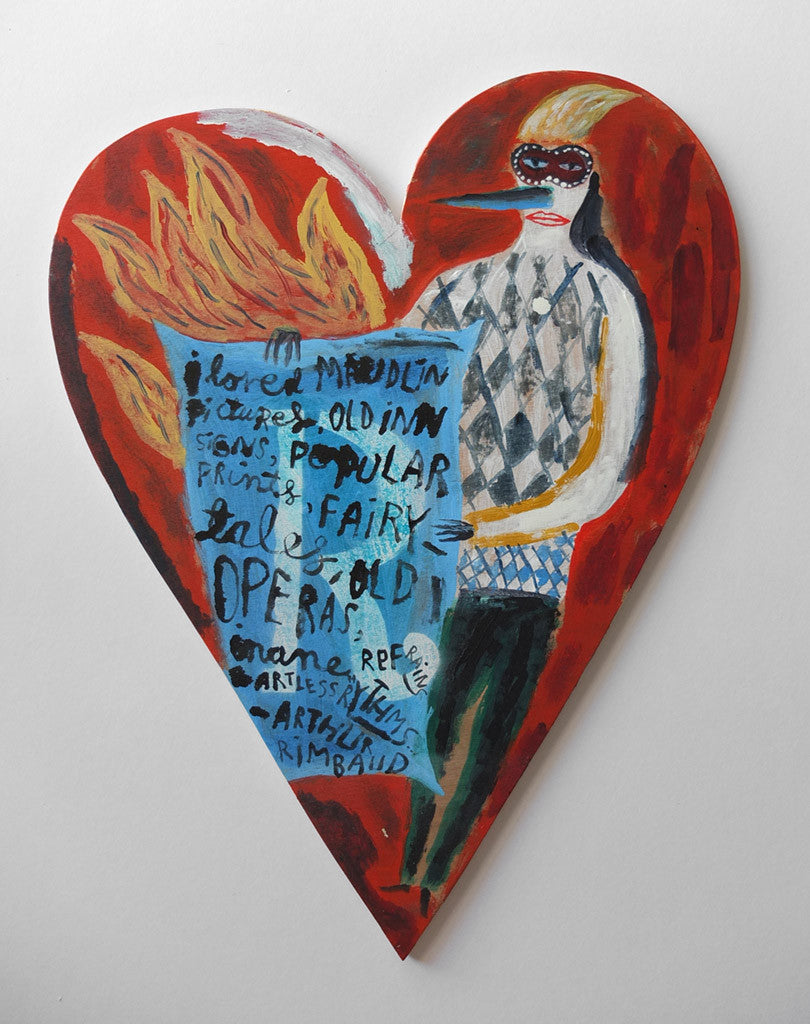 i loved MAUDLIN
Pictures, OLD iNN
SiGNS, POPULAR
PRiNtS
tales, FAiRY
OPERAS, OLD
inane REFRAiNS
ARTLESS RYTHMS.
- ARTHUR
RiMBAUD
R